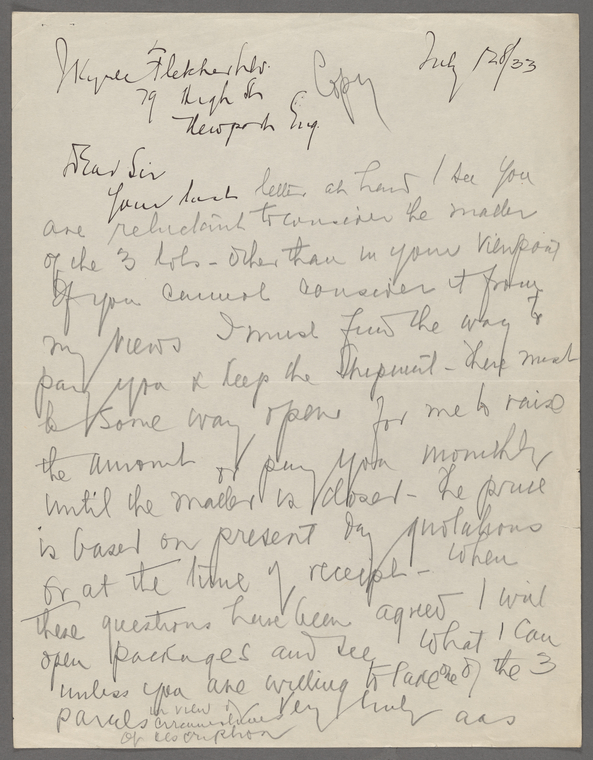 J Kyrle Fletcher Ltd.
Copy
July 28/33
79 High St
Newport Eng.
Dear Sir
Your last letter at hand I see you
are reluctant to consider the matter
of the 3 lots - other than in your viewpoint
If you cannot consider it from
my views I must find the way to
pay you & keep the shipment - there must
be some way open for me to raise
the amount or pay you monthly
until the matter is closed - The price
is based on present day quotations
or at the time of receipt - When
these questions have been agreed I will
open packages and see what I can
unless you are willing to take one of the 3
parcels in view of circumstances of description
Very truly aas